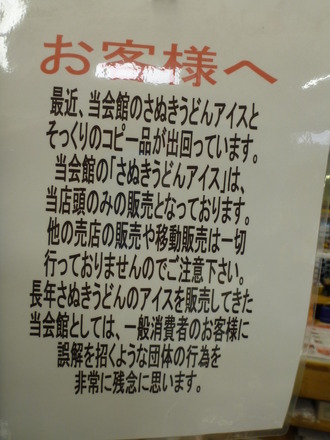 お客様へ
最近、当会館のさぬきうどんアイスと
そっくりのコピー品が出回っています。
当会館の「さぬきうどんアイス」は、
当店頭のみの販売となっております。
他の売店の販売や移動販売は一切
行っておりませんのでご注意下さい。
長年さぬきうどんのアイスを販売してきた
当会館としては、一般消費者のお客様に
誤解を招くような団体の行為を
非常に残念に思います。